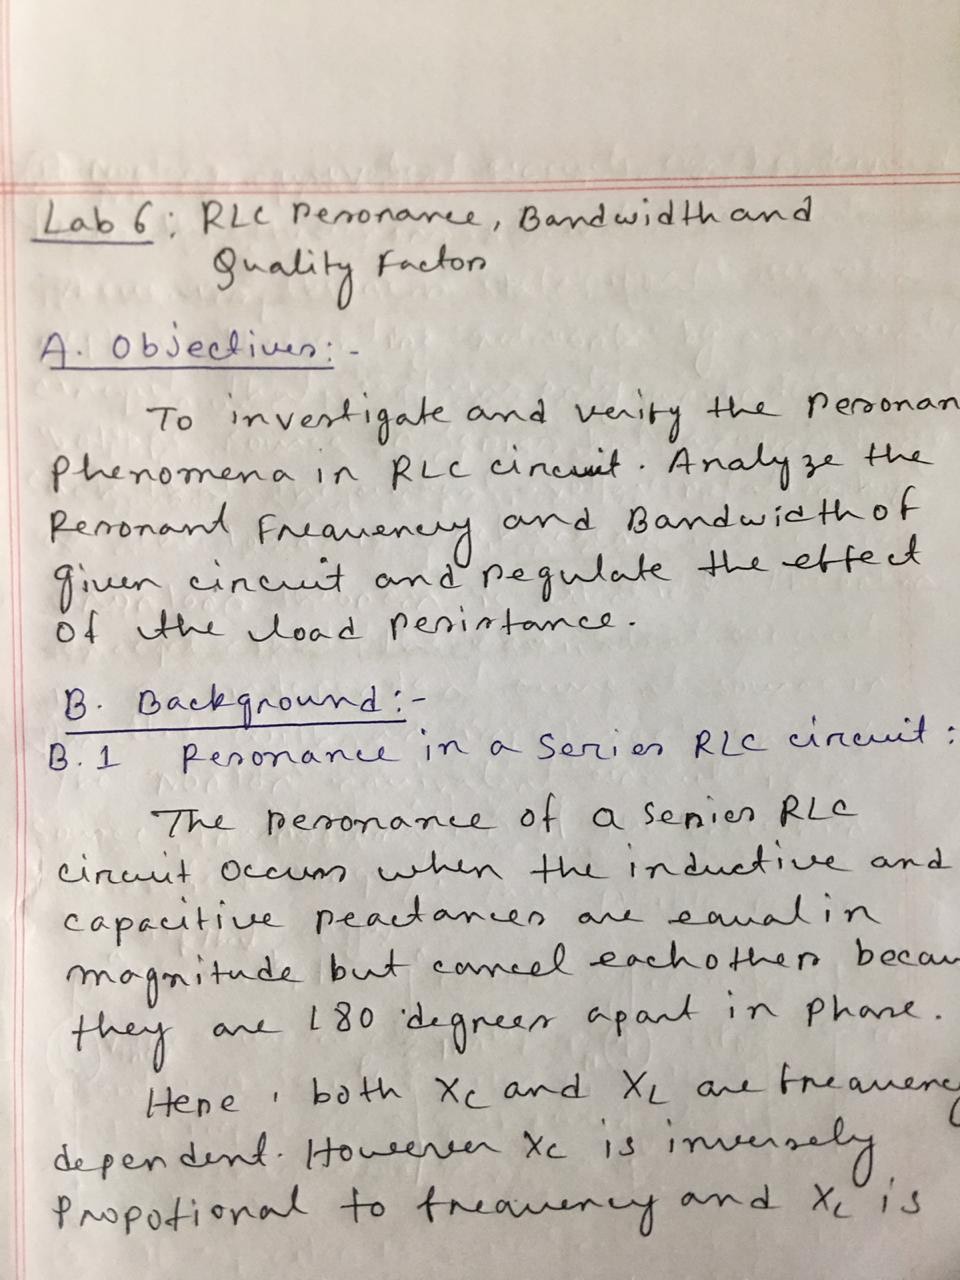 Lab 6: RLC Resonance, Bandwidth and
Quality Factor
A. Objectives:-
To investigate and verify the Resonan
Phenomena in RLC circuit. Analyze the
Resonant Frequency and Bandwidth of
given circuit and regulate the effect
of the load resistance.
B. Background:-
B.1 Resonance in a Series RLC circuit:
The resonance of a series RLC
circuit occurs when the inductive and
capacitive reactances are equal in
magnitude but cancel each other becau
they are 180 degrees apart in phase.
Here, both XC and XL are frequency
dependent. However XC is inversely
Propotional to frequency and XL is